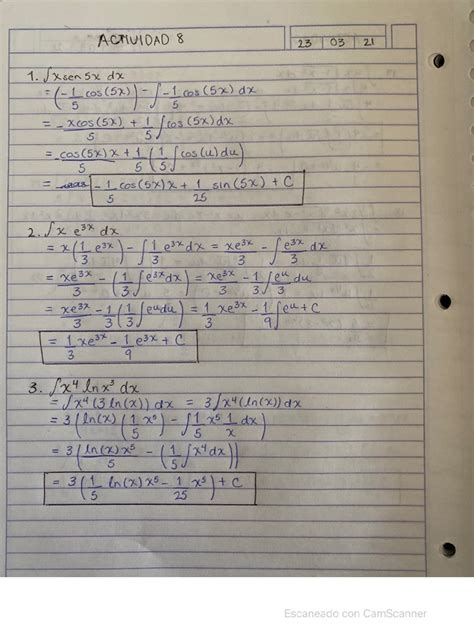 ACTIVIDAD 8
23 03 21
1. ∫x sen 5x dx
= (-1/5 cos(5x)) - ∫-1/5 cos(5x) dx
= -xcos(5x)/5 + 1/5 ∫cos(5x)dx
= -cos(5x)x/5 + 1/5 (1/5 ∫cos(u)du)
= -1/5 cos(5x)x + 1/25 sin(5x) + C
2. ∫x e³ˣ dx
= x(1/3 e³ˣ) - ∫1/3 e³ˣ dx = xe³ˣ/3 - ∫e³ˣ/3 dx
= xe³ˣ/3 - (1/3 ∫e³ˣdx) = xe³ˣ/3 - 1/3 ∫eᵘ du
= xe³ˣ/3 - 1/3 (1/3 ∫eᵘdu) = 1/3 xe³ˣ - 1/9 ∫eᵘ + C
= 1/3 xe³ˣ - 1/9 e³ˣ + C
3. ∫x⁴ ln x³ dx
= ∫x⁴ (3 ln(x)) dx = 3∫x⁴(ln(x)) dx
= 3(ln(x)(1/5 x⁵) - ∫1/5 x⁵ 1/x dx)
= 3(ln(x)x⁵/5 - (1/5 ∫x⁴dx))
= 3(1/5 ln(x) x⁵ - 1/25 x⁵) + C
Escaneado con CamScanner